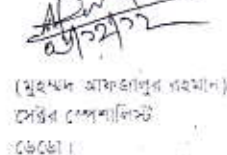 (মুহম্মদ আফজালুর রহমান)
সেক্টর স্পেশালিস্ট
ডেডো।